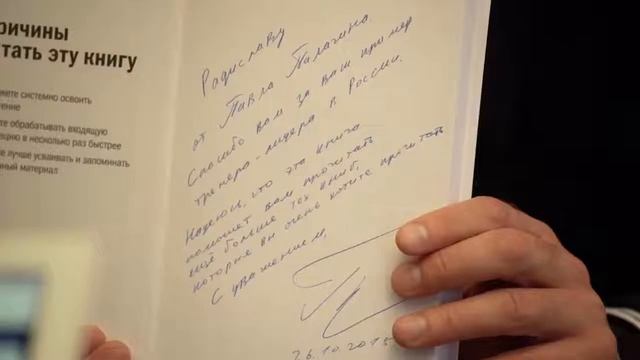 ричины
тать эту книгу
жете системно освоить
тение
те обрабатывать входящую
цию в несколько раз быстрее
е лучше усваивать и запоминать
ный материал
Радиславу
от Павла Палагина.
Спасибо вам за ваш пример
тренера-лидера в России.
Надеюсь, что эта книга
поможет вам прочитать
ещё больше тех книг,
которые вы очень хотите прочитать
С уважением,
26.10.2015